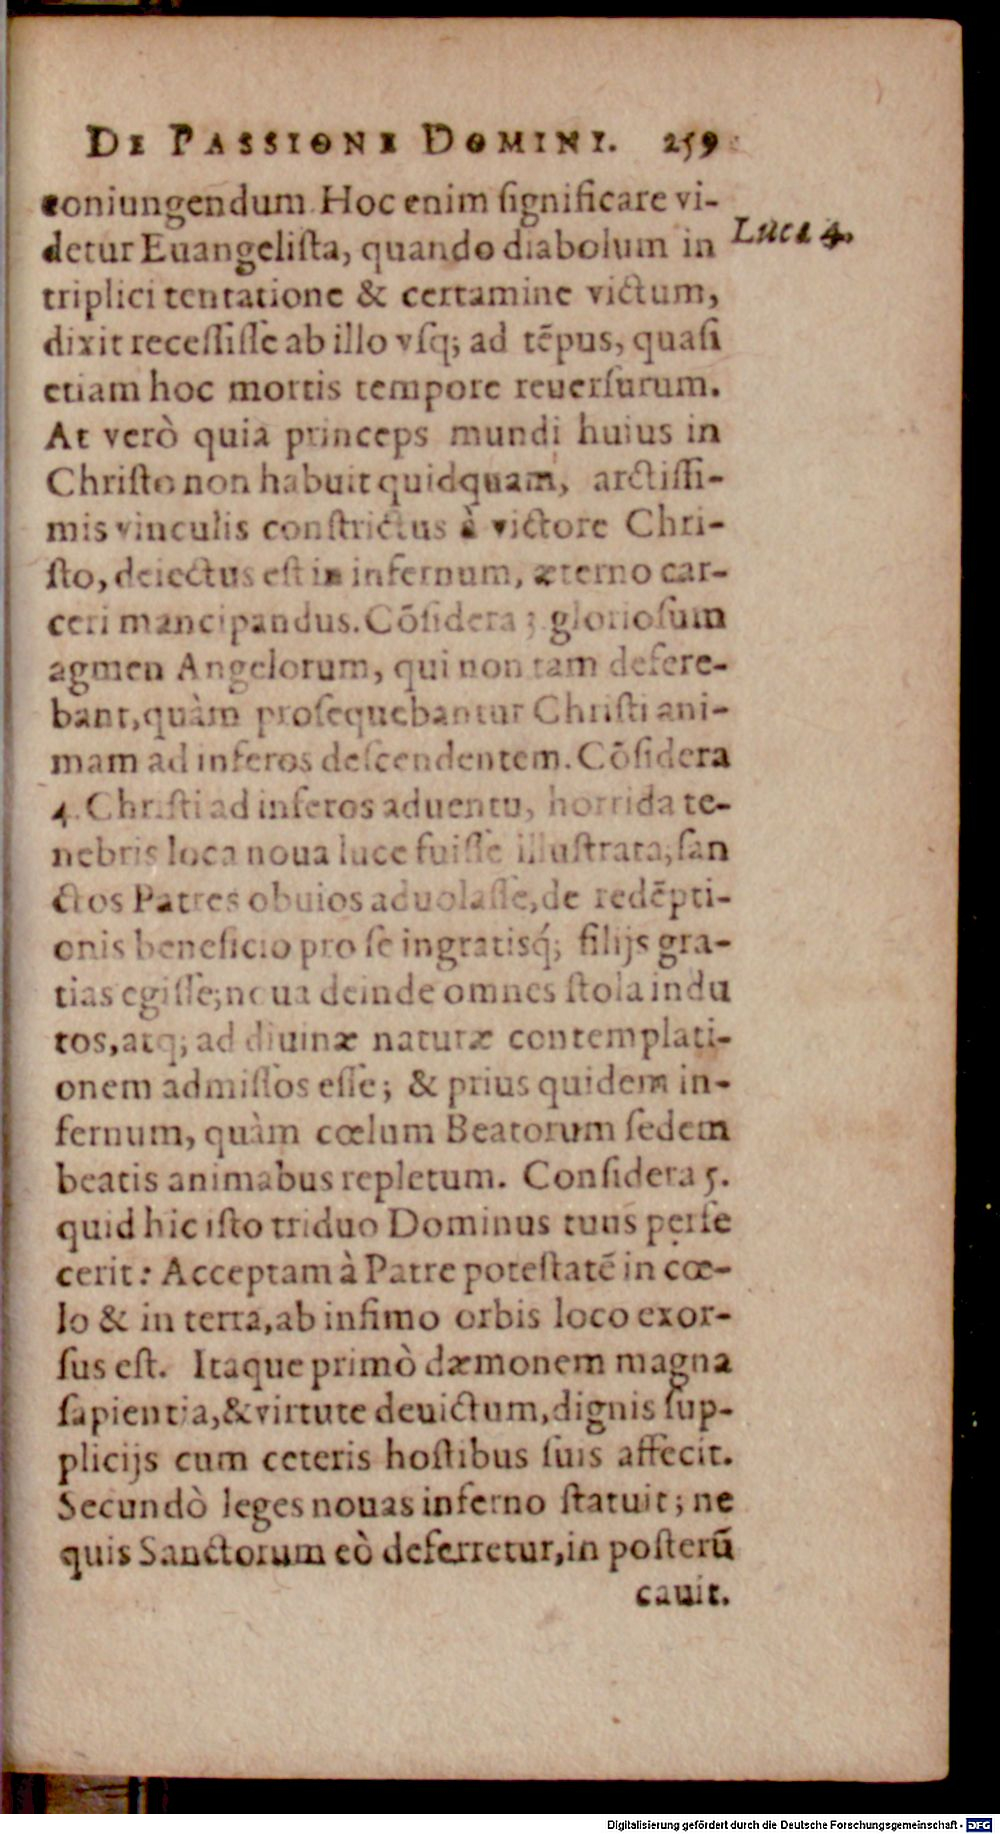 DE PASSIONE DOMINI. 259
coniungendum. Hoc enim ſignificare vi-
detur Euangeliſta, quando diabolum in
Luca 4.
triplici tentatione & certamine victum,
dixit receſſiſſe ab illo vſq; ad tẽpus, quaſi
etiam hoc mortis tempore reuerſurum.
At verò quia princeps mundi huius in
Chriſto non habuit quidquam, arctiſſi-
mis vinculis conſtrictus à victore Chri-
ſto, deiectus eſt in infernum, æterno car-
ceri mancipandus. Cõſidera 3. glorioſum
agmen Angelorum, qui non tam defere-
bant, quàm proſequebantur Chriſti ani-
mam ad inferos deſcendentem. Cõſidera
4. Chriſti ad inferos aduentu, horrida te-
nebris loca noua luce fuiſſe illuſtrata, ſan
ctos Patres obuios aduolaſſe, de redẽpti-
onis beneficio pro ſe ingratisq́; filijs gra-
tias egiſſe; noua deinde omnes ſtola indu
tos, atq; ad diuinæ naturæ contemplati-
onem admiſſos eſſe; & prius quidem in-
fernum, quàm cœlum Beatorum ſedem
beatis animabus repletum. Conſidera 5.
quid hic iſto triduo Dominus tuus perfe
cerit: Acceptam à Patre poteſtatẽ in cœ-
lo & in terra, ab infimo orbis loco exor-
ſus eſt. Itaque primò dæmonem magna
ſapientia, & virtute deuictum, dignis ſup-
plicijs cum ceteris hoſtibus ſuis affecit.
Secundò leges nouas inferno ſtatuit; ne
quis Sanctorum eò deferretur, in poſterũ
cauit.
Digitalisierung gefördert durch die Deutsche Forschungsgemeinschaft - DFG